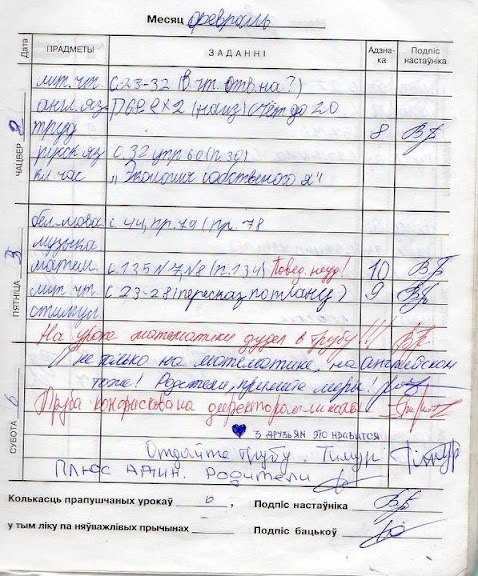 Месяц февраль
Дата ПРАДМЕТЫ ЗАДАННІ Адзна-ка Подпіс настаўніка
ЧАЦВЕР 2
лит. чт. с. 23-32 (в. чт. отв. на ?)
англ. яз. (наиз) счёт до 20
труд 8
русск. яз с. 32 упр 60 (п. 30)
кл. час „Экономич собственого я"
ПЯТНІЦА 3
бел. мова с. 44, пр. 79 (пр. 78
музыка
матем. с. 135 №7 №8 (п. 134) Повед. неуд! 10
лит. чт. с 23-28 (пересказ по плану) 9
стимул.
На уроке математики дудел в трубу!!!
СУБОТА 6
И не только на математике, на английском
тоже! Родители, примите меры!
Труба конфискована директором школы
♥ 3 друзьям это нравится
Отдайте трубу. Тимур Тимур
Плюс адин. Родители
Колькасць прапушчаных урокаў 6, Подпіс настаўніка
у тым ліку па няўважлівых прычынах Подпіс бацькоў